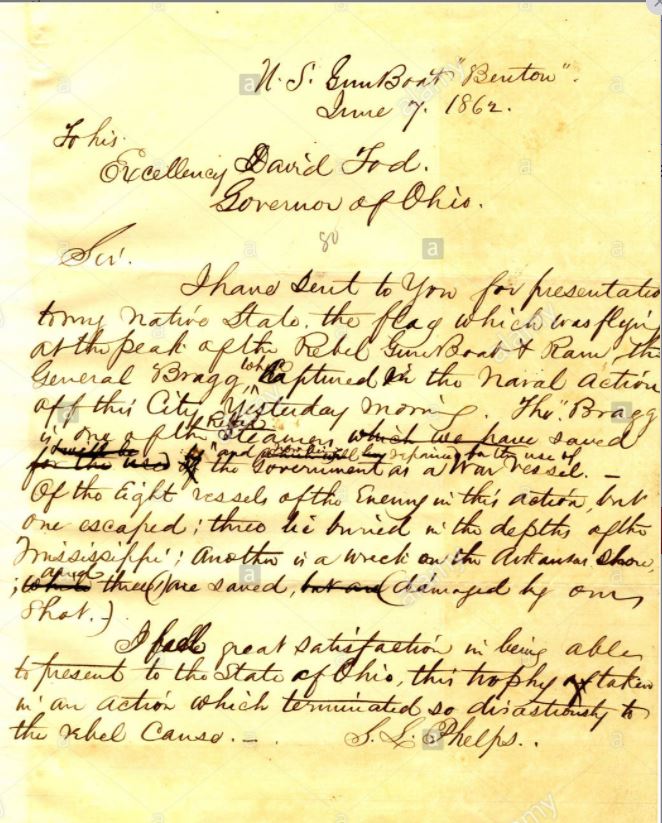 U. S. Gun Boat "Benton".
June 7. 1862.
To his
Excellency David Tod.
Governor of Ohio.
80
Sir.
I have sent to You for presentatio
to my native State. the flag which was flying
at the peak of the Rebel Gun Boat & Ram, the
General Bragg, captured in the Naval Action
off this City, Yesterday morning. The "Bragg
is one of the Rebel Steamers which we have saved
will be and will be repaired for the use of
for the used of the Government as a War vessel. —
Of the Eight vessels of the Enemy in this action, but
one escaped; three lie buried in the depths of the
Mississippi; Another is a wreck on the Arkansas shore,
; three (are saved, but are (damaged by our
Shot.)
I feel great satisfaction in being able
to present to the State of Ohio, this trophy taken
in an action which terminated so disastrously to
the rebel Cause. —. S. L. Phelps..